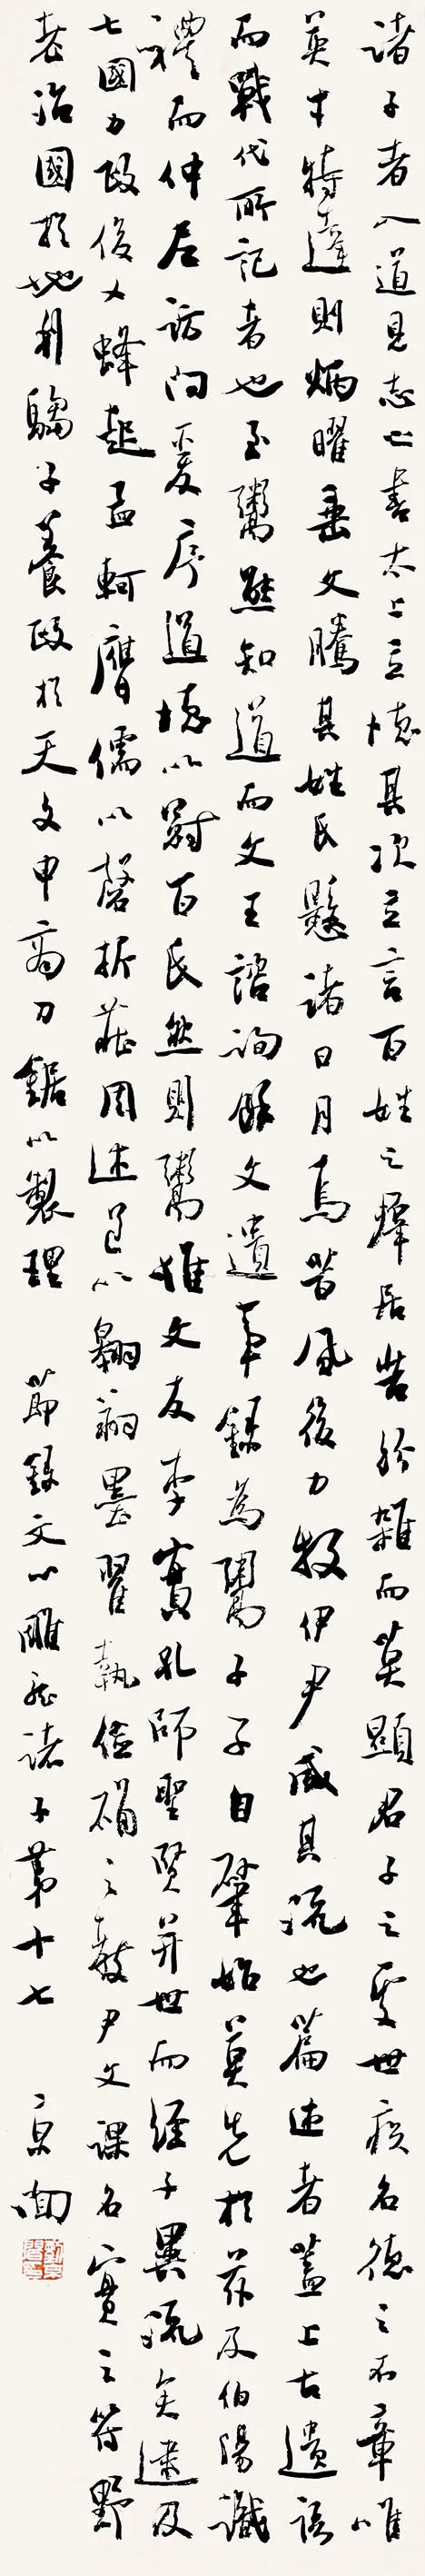 諸子者入道見志之書太上立德其次立言百姓之群居苦紛雜而莫顯君子之處世疾名德之不章唯
英才特達則炳曜垂文騰其姓氏懸諸日月焉昔風後力牧伊尹咸其流也篇述者蓋上古遺語
而戰代所記者也至鬻熊知道而文王諮詢餘文遺事錄為鬻子子自肇始莫先於茲及伯陽識
禮而仲尼訪問爰序道德以冠百氏然則鬻惟文友李實孔師聖賢并世而經子異流矣逮及
七國力政俊乂蜂起孟軻膺儒以磬折莊周述道以翱翔墨翟執儉確之教尹文課名實之符野
老治國於地利騶子養政於天文申商刀鋸以製理 節錄文心雕龍諸子第十七 京聞